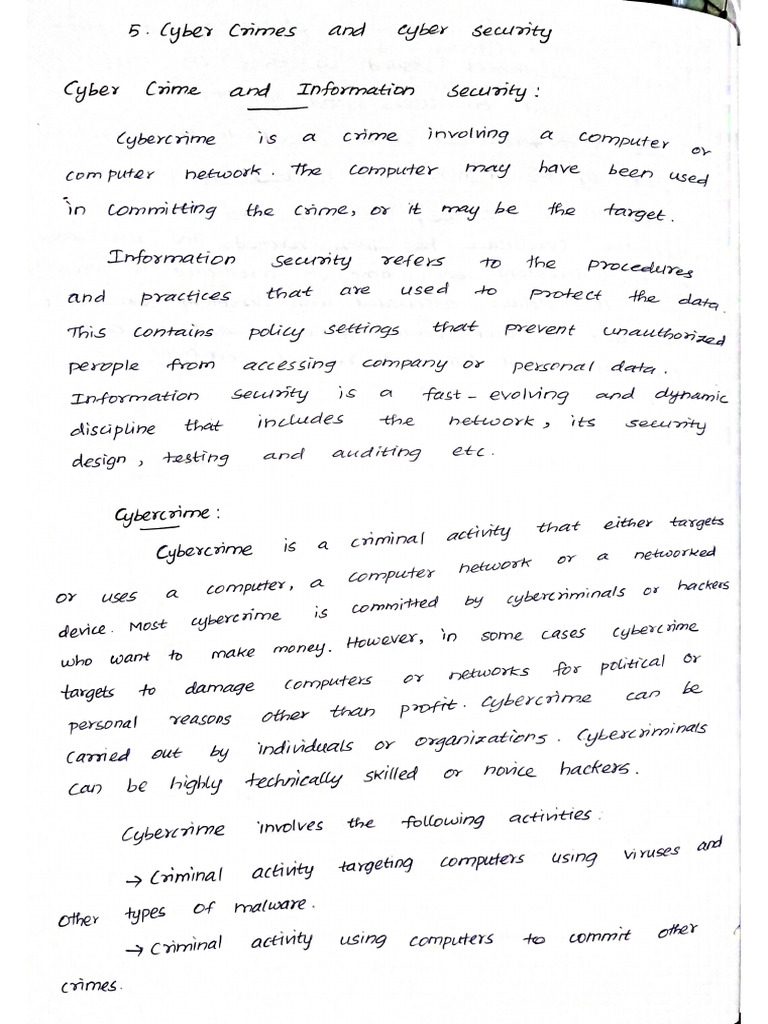 5. Cyber Crimes and cyber security
Cyber Crime and Information Security:
Cybercrime is a crime involving a computer or
computer network. The computer may have been used
in committing the crime, or it may be the target.
Information security refers to the procedures
and practices that are used to protect the data.
This contains policy settings that prevent unauthorized
perople from accessing company or personal data.
Information security is a fast-evolving and dynamic
discipline that includes the network, its security
design, testing and auditing etc.
Cybercrime:
Cybercrime is a criminal activity that either targets
or uses a computer, a computer network or a networked
device. Most cybercrime is committed by cybercriminals or hackers
who want to make money. However, in some cases cybercrime
targets to damage computers or networks for political or
personal reasons other than profit. Cybercrime can be
carried out by individuals or organizations. Cybercriminals
can be highly technically skilled or novice hackers.
Cybercrime involves the following activities:
→ Criminal activity targeting computers using viruses and
other types of malware.
→ Criminal activity using computers to commit other
crimes.